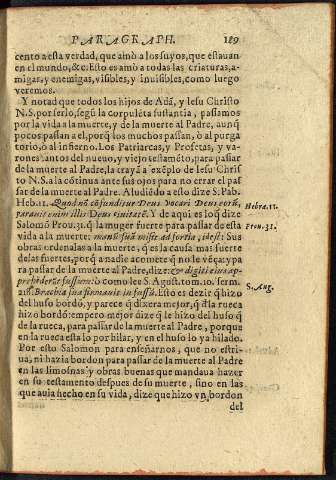 PARAGRAPH. 189
cento a esta verdad, que amò a los suyos, que estauan
en el mundo, &c. Esto es amò a todas las criaturas, a-
migas, y enemigas, visibles, y inuisibles, como luego
veremos.
Y notad que todos los hijos de Adã, y Iesu Christo
N. S. por serlo, segũ la corpulẽta sustantia, passamos
por la vida a la muerte, y de la muerte al Padre, aunq̃
pocos passan a el, porq̃ los muchos passan, ò al purga
torio, ò al infierno. Los Patriarcas, y Profetas, y va-
rones santos del nueuo, y viejo testamẽto, para passar
de la muerte al Padre, la trayã a exẽplo de Iesu Chris-
to N. S. a la cõtinua ante sus ojos para no errar el pas
sar de la muerte al Padre. Aludiẽdo a esto dize S. Pab.
Heb. 11. Quod nõ cõfunditur Deus vocari Deus eorũ,
parauit enim illis Deus ciuitatẽ. Y de aqui es loq̃ dize
Hebra. 11.
Salomõ Prou. 31. q̃ la muger fuerte para passar de esta
Prou. 31.
vida a la muerte: manũ suã misit ad fortia, id est: Sus
obras ordenalas a la muerte, q̃ es la cosa mas fuerte
delas fuertes, porq̃ a nadie acomete q̃ no le vẽça; y pa
ra passar de la muerte al Padre, dize: & digiti eius ap-
prehẽderũt fusum: ò como lee S. Agust. tom. 10. serm.
S. Aug.
218. Brachia sua firmauit in fusũ. Esto es dezir q̃ hizo
del huso bordò, y parece q̃ dixera mejor, q̃ dela rueca
hizo bordõ: empero mejor dize q̃ le hizo del huso q̃
de la rueca, para passar de la muerte al Padre, porque
en la rueca esta lo por hilar, y en el huso lo ya hilado.
Por esto Salomon para enseñarnos, que no estri-
ua, ni hazia bordon para passar de la muerte al Padre
en las limosnas y obras buenas que mandaua hazer
en su testamento despues de su muerte, sino en las
que auia hecho en su vida, dize que hizo vn bordon
del